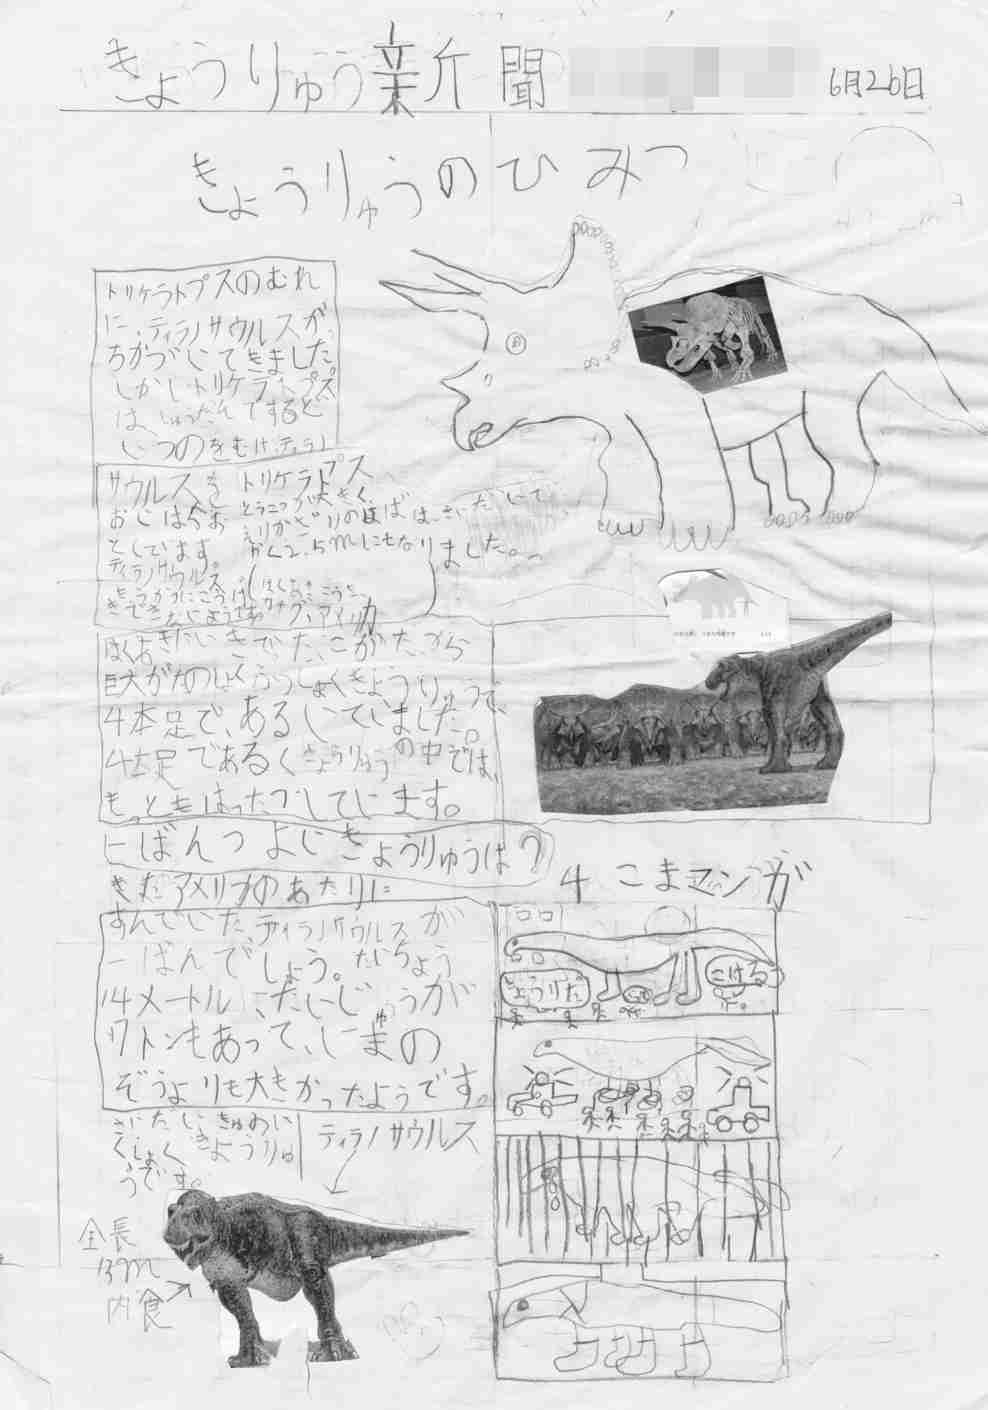 きょうりゅう新聞
6月26日
きょうりゅうのひみつ
トリケラトプスのむれ
に、ティラノサウルスが、
ちかづいてきました。
しかし、トリケラトプス
は、しゅうだんですると
いつのをむけ、ティラノ
サウルスを
おいはらお
としています。
ティラノサウルス
トリケラトプス
とうこつが大きく、
えりかざりのはばは、さいだいで
がく2.5mにもなりました。
巨大がたのしょくぶつしょくきょうりゅうで、
4本足で、あるいていました。
4本足であるくきょうりゅうの中では、
もっともはったつしています。
一ばんつよいきょうりゅうは?
きたアメリカのあたりに
すんでいたティラノサウルスが
一ばんでしょう。たいちょう
14メートル、たいじゅうが
7トンもあって、いまの
ぞうよりも大きかったようです。
さいだいきゅうのに
くしょくきょうりゅ
うです。
ティラノサウルス
全長
13m
肉食
4こまマンガ
きょうりゅうだ
こける